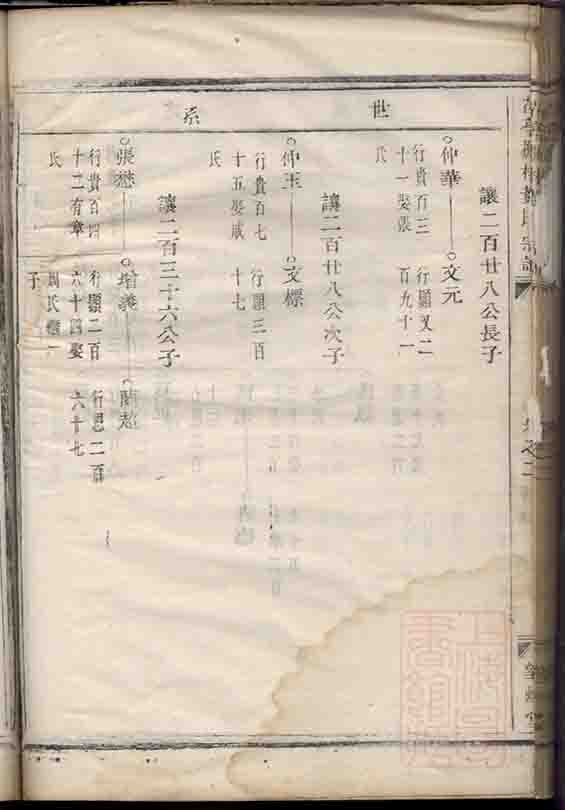 世系
讓二百廿八公長子
仲華
行貴百三
十一娶張
氏
文元
行顯又二
百九十一
讓二百廿八公次子
仲玉
行貴百七
十五娶戚
氏
文標
行顯三百
十七
讓二百三十六公子
張懋
行貴百四
十二有章
氏
增義
行顯二百
六十四娶
周氏
子
蘭
行思二百
六十七
卷之二